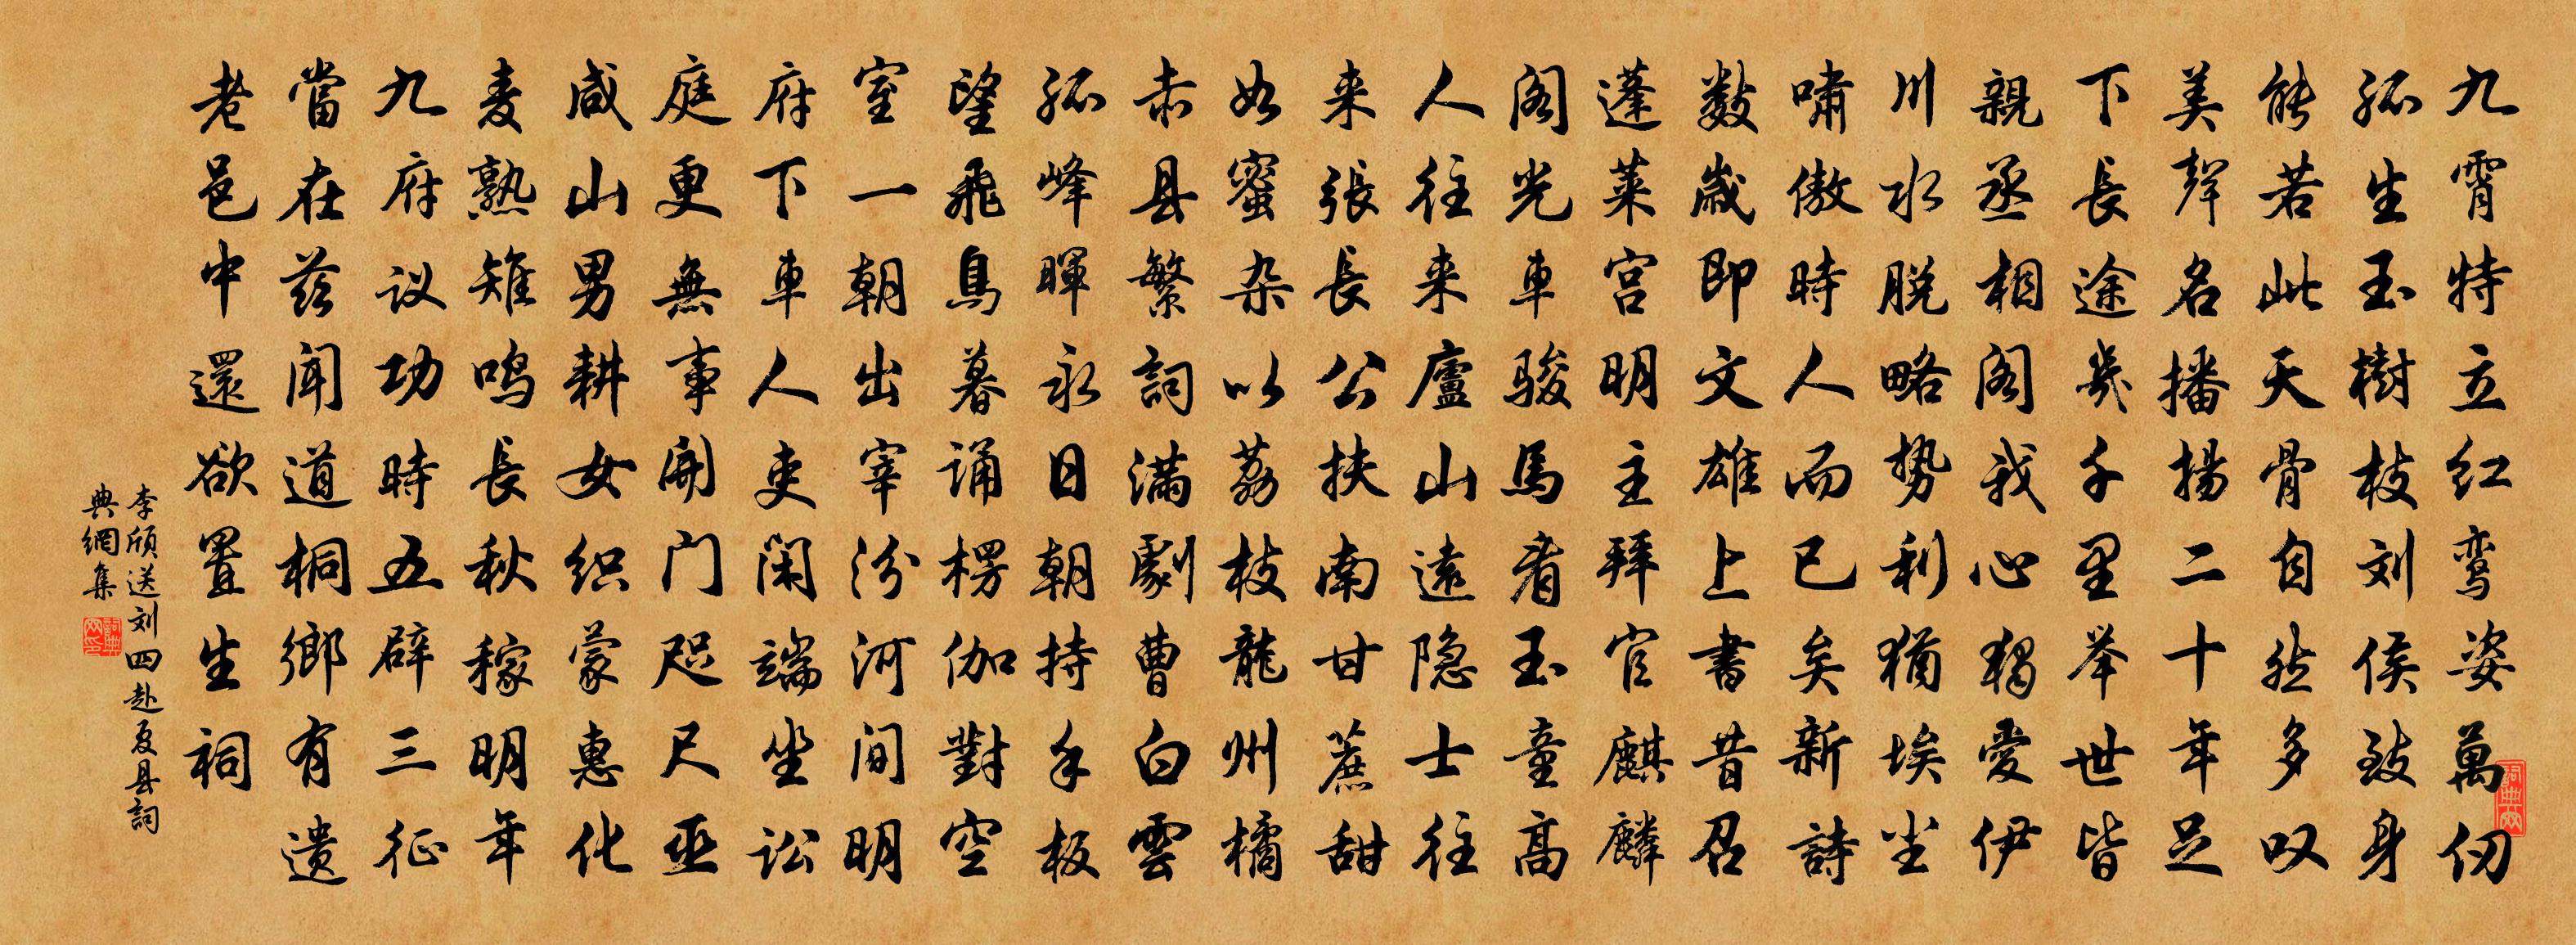 九霄特立红鸾姿萬仞
孤生玉樹枝刘侯致身
能若此天骨自然多叹
美聲名播揚二十年足
下長途幾千里举世皆
親丞相阁我心獨愛伊
川水脱略势利猶埃尘
嘯傲時人而已矣新詩
数歲即文雄上書昔召
蓬莱宫明主拜官麒麟
阁光車骏馬看玉童高
人往来廬山遠隐士往
来張長公扶南甘蔗甜
如蜜杂以荔枝龍州橘
赤县繁詞满劇曹白雲
孤峰暉永日朝持手板
望飛鳥暮诵楞伽對空
室一朝出宰汾河间明
府下車人吏闲端坐讼
庭更無事開门咫尺巫
咸山男耕女织蒙惠化
麦熟雉鸣長秋稼明年
九府议功時五辟三征
當在兹闻道桐鄉有遗
老邑中還欲置生祠
李颀送刘四赴夏县詞
典網集
詞典网印
詞典网